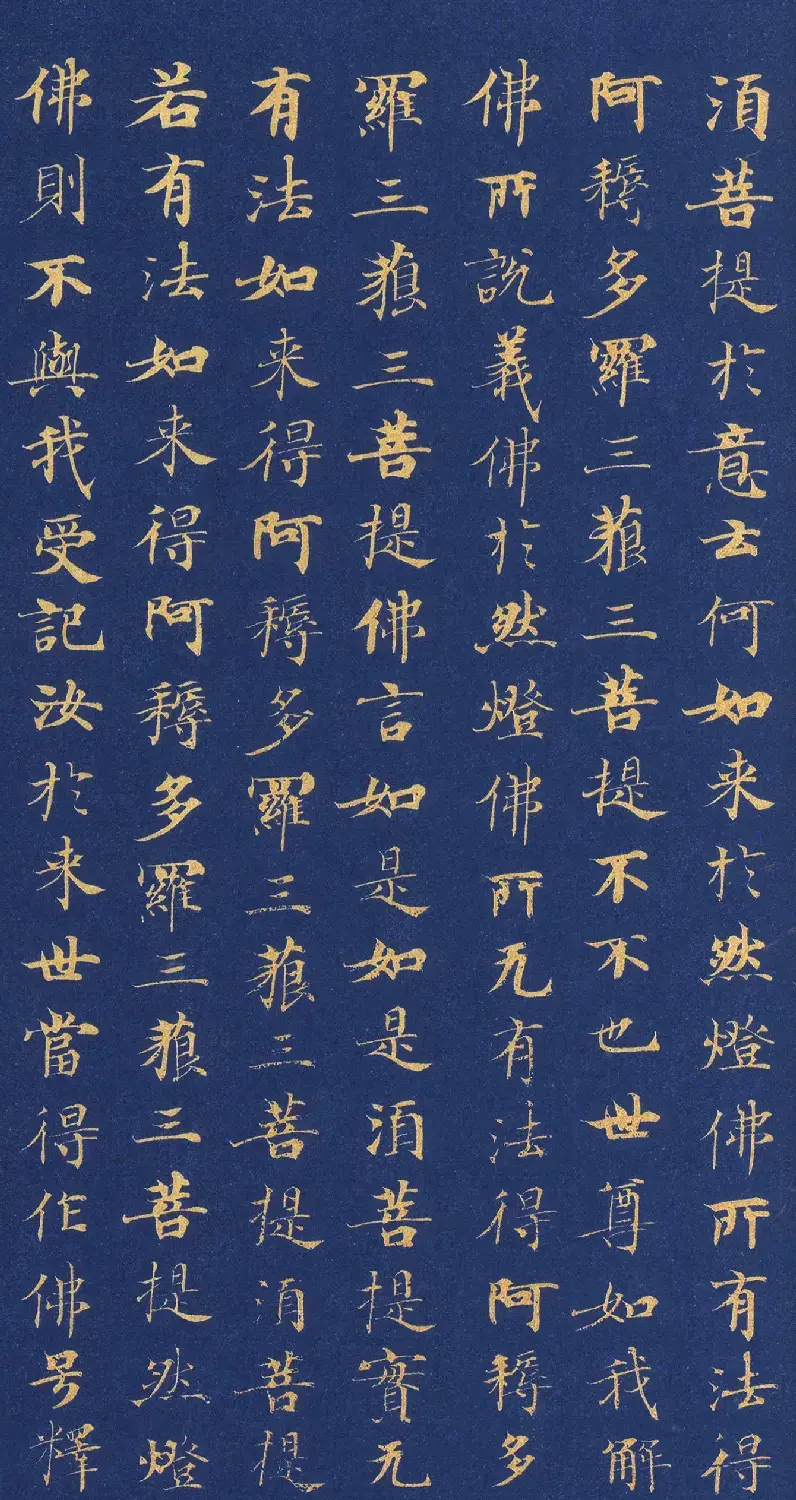 湏菩提扵意云何如来扵然燈佛所有法得
阿耨多羅三藐三菩提不不也世尊如我解
佛所說義佛扵然燈佛所无有法得阿耨多
羅三藐三菩提佛言如是如是湏菩提實无
有法如来得阿耨多羅三藐三菩提湏菩提
若有法如来得阿耨多羅三藐三菩提然燈
佛則不與我受記汝扵来世當得作佛号釋